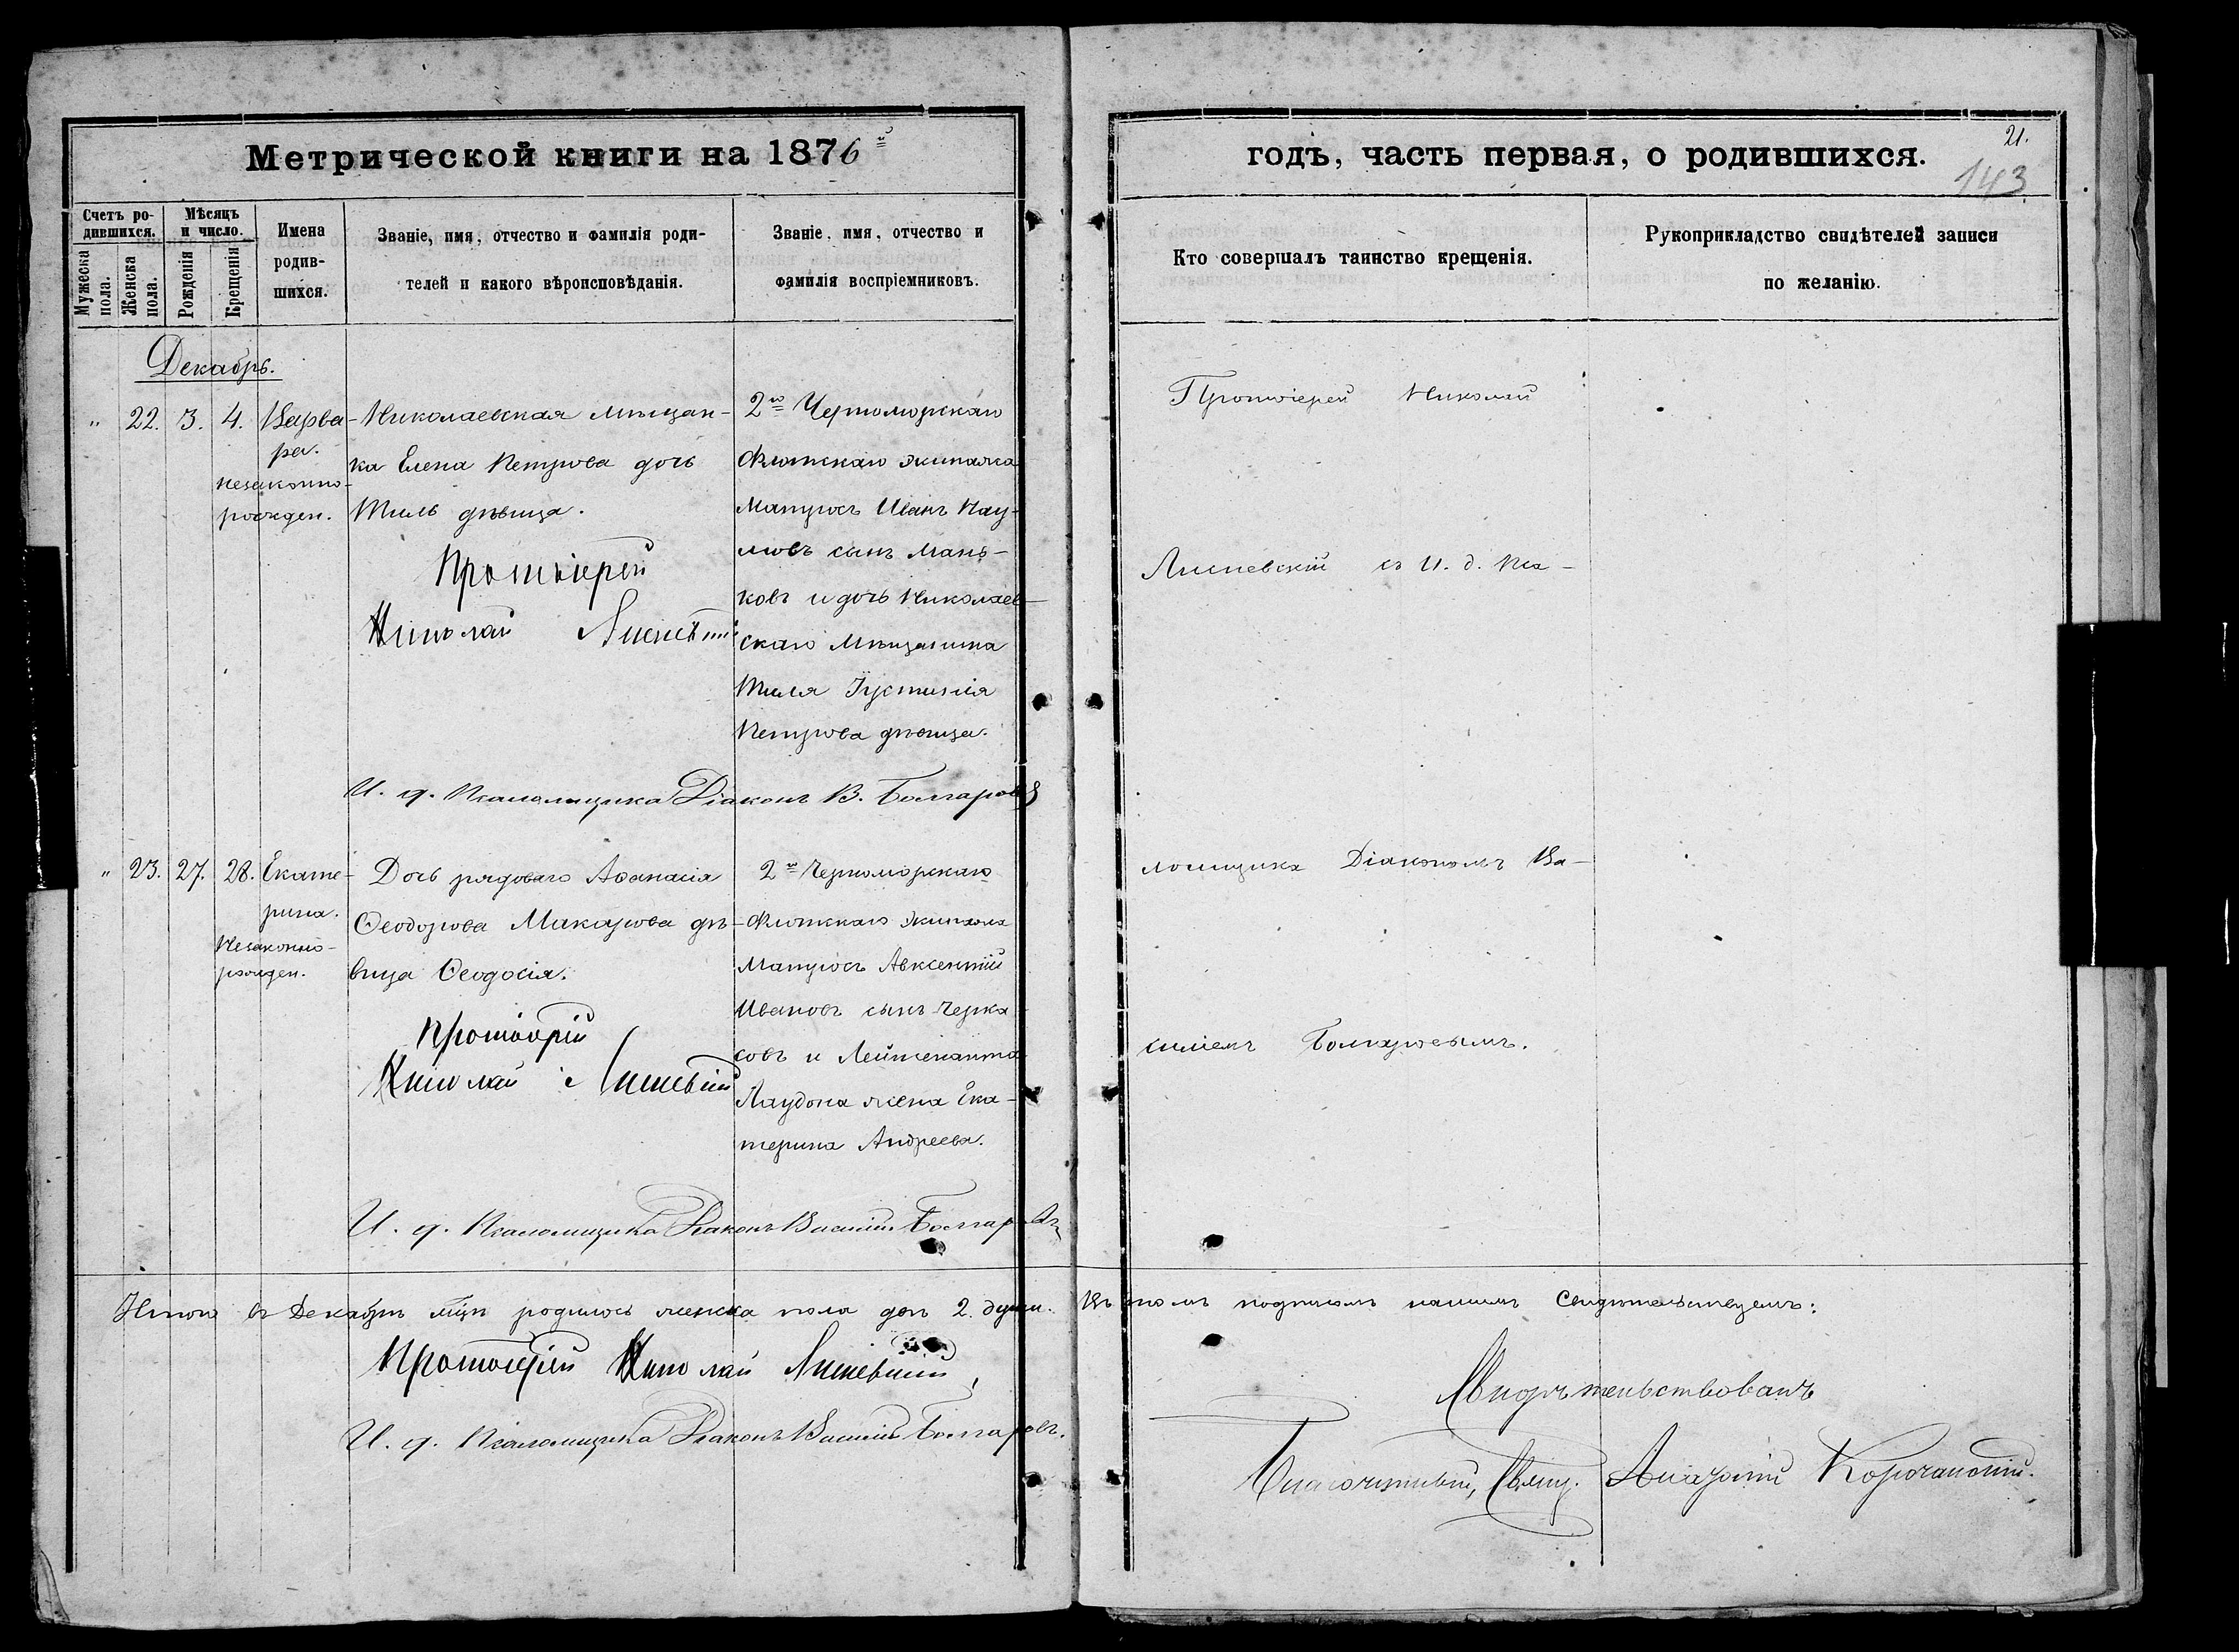 Метрической книги на 1876й
годъ, часть первая, о родившихся.
21.
143
Счетъ ро-
дившихся.
Мужеска
пола.
Женска
пола.
Мѣсяцъ
и число.
Рожденія
Крещенія
Имена
родив-
шихся.
Званіе, имя, отчество и фамилія роди-
телей и какого вѣроисповѣданія.
Званіе, имя, отчество и
фамилія воспріемниковъ.
Кто совершалъ таинство крещенія.
Рукоприкладство свидѣтелей записи
по желанію.
Декабрь.
" 22. 3. 4. Варва-
ра.
незаконно-
рожден.
Николаевская мѣщан-
ка Елена Петрова дочь
Тиль дѣвица.
Протоіерей
Николай
2го Черноморскаго
Флотскаго экипажа
Матросъ Иванъ Нау-
мовъ сынъ Мань-
ковъ и дочь Николаев-
скаго мѣщанина
Тиля Іустинія
Петрова дѣвица.
И. д. Псаломщика Діаконъ В. Болгаровъ
" 23. 27. 28. Екате-
рина.
Незаконно-
рожден.
Дочь рядоваго Аѳанасія
Ѳеодорова Макарова дѣ-
вица Ѳеодосія.
Протоіерей
Николай
2го Черноморскаго
Флотскаго экипажа
Матросъ Авксентій
Ивановъ сынъ Черка
совъ и Лейтенанта
Лаудона жена Ека-
терина Андреева.
И. д. Псаломщика Діаконъ Василій Болгаровъ
Протоіерей Николай
съ И. д. Пса-
ломщика Діакономъ Ва-
силіемъ Болгаровымъ.
Итого въ Декабрѣ мцѣ родилось женска пола двѣ 2. души. Въ томъ подписомъ нашимъ Свидѣтельствуемъ:
Протоіерей Николай
И. д. Псаломщика Діаконъ Василій Болгаровъ.
Свидѣтельствовалъ
Благочинный, Свящ.